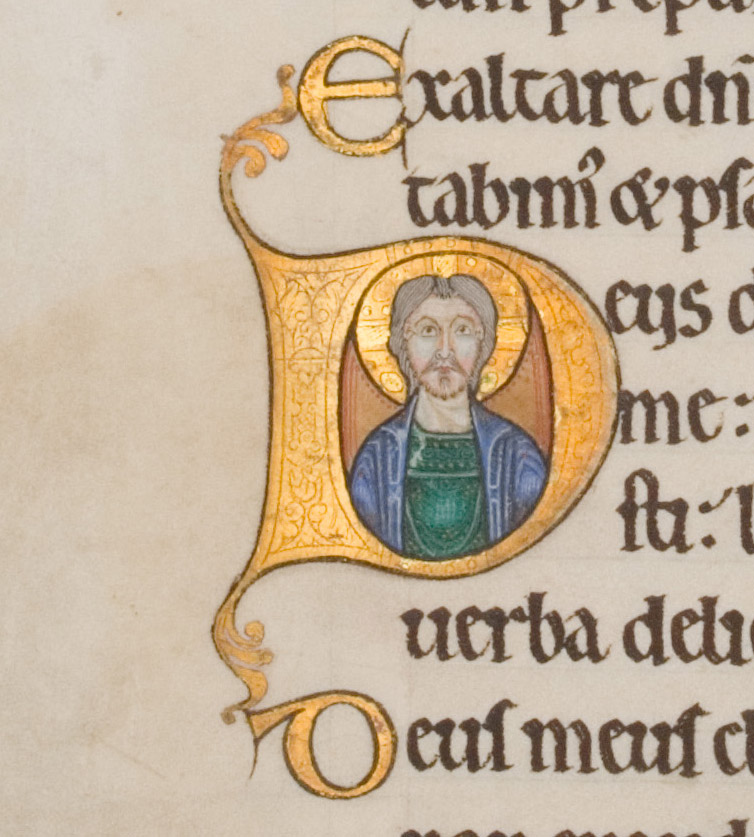 Exaltare dn̄
tabimꝰ & pſa
Deus d
me:
ſti: l
uerba deli
Deuſ meuſ cl